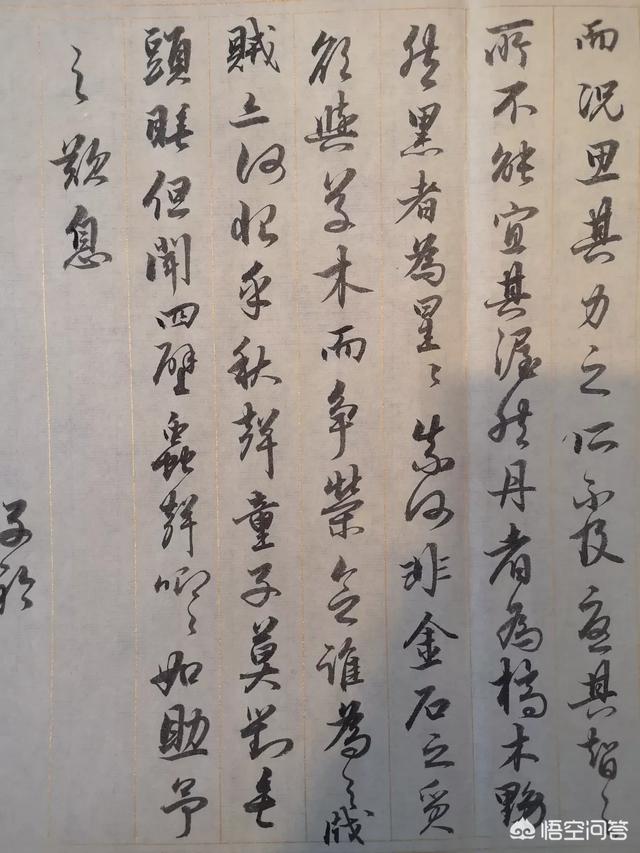 而况思其力之所不及憂其智之
所不能宜其渥然丹者為槁木黟
然黑者為星〻奈何非金石之質
欲與草木而争榮念誰為之戕
賊亦何恨乎秋聲童子莫對垂
頭睡但聞四壁蟲聲唧〻如助予
之歎息
悟空问答